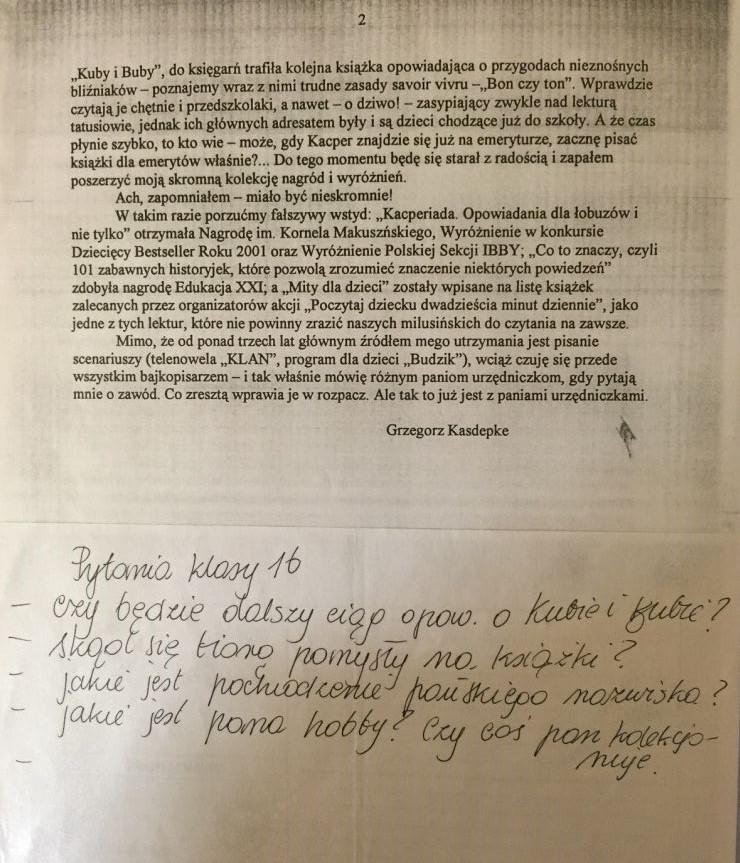 2
„Kuby i Buby”, do księgarń trafiła kolejna książka opowiadająca o przygodach nieznośnych
bliźniaków – poznajemy wraz z nimi trudne zasady savoir vivru –„Bon czy ton”. Wprawdzie
czytają je chętnie i przedszkolaki, a nawet – o dziwo! – zasypiający zwykle nad lekturą
tatusiowie, jednak ich głównych adresatem były i są dzieci chodzące już do szkoły. A że czas
płynie szybko, to kto wie – może, gdy Kacper znajdzie się już na emeryturze, zacznę pisać
książki dla emerytów właśnie?... Do tego momentu będę się starał z radością i zapałem
poszerzyć moją skromną kolekcję nagród i wyróżnień.
Ach, zapomniałem – miało być nieskromnie!
W takim razie porzućmy fałszywy wstyd: „Kacperiada. Opowiadania dla łobuzów i
nie tylko” otrzymała Nagrodę im. Kornela Makuszńskiego, Wyróżnienie w konkursie
Dziecięcy Bestseller Roku 2001 oraz Wyróżnienie Polskiej Sekcji IBBY; „Co to znaczy, czyli
101 zabawnych historyjek, które pozwolą zrozumieć znaczenie niektórych powiedzeń”
zdobyła nagrodę Edukacja XXI; a „Mity dla dzieci” zostały wpisane na listę książek
zalecanych przez organizatorów akcji „Poczytaj dziecku dwadzieścia minut dziennie”, jako
jedne z tych lektur, które nie powinny zrazić naszych milusińskich do czytania na zawsze.
Mimo, że od ponad trzech lat głównym źródłem mego utrzymania jest pisanie
scenariuszy (telenowela „KLAN”, program dla dzieci „Budzik”), wciąż czuję się przede
wszystkim bajkopisarzem – i tak właśnie mówię różnym paniom urzędniczkom, gdy pytają
mnie o zawód. Co zresztą wprawia je w rozpacz. Ale tak to już jest z paniami urzędniczkami.
Grzegorz Kasdepke
Pytania klasy 1b
– Czy będzie dalszy ciąg opow. o Kubie i Bubie?
– Skąd się biorą pomysły na książki?
– jakie jest pochodzenie pańskiego nazwiska?
– jakie jest pana hobby? Czy coś pan kolekcjo-
– nuje.